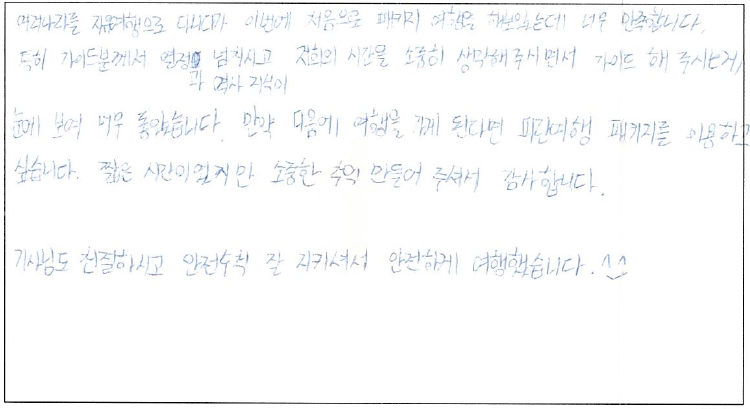 여러나라를 자유여행으로 다니다가 이번에 처음으로 패키지 여행을 해보았는데 너무 만족합니다.
특히 가이드분께서 열정 넘치시고 저희의 시간을 소중히 생각해 주시면서 가이드 해 주시는게
과 역사 지식이
눈에 보여 너무 좋았습니다. 만약 다음에 여행을 가게 된다면 파란여행 패키지를 이용하고
싶습니다. 짧은 시간이었지만 소중한 추억 만들어 주셔서 감사합니다.
기사님도 친절하시고 안전수칙 잘 지키셔서 안전하게 여행했습니다. ^^